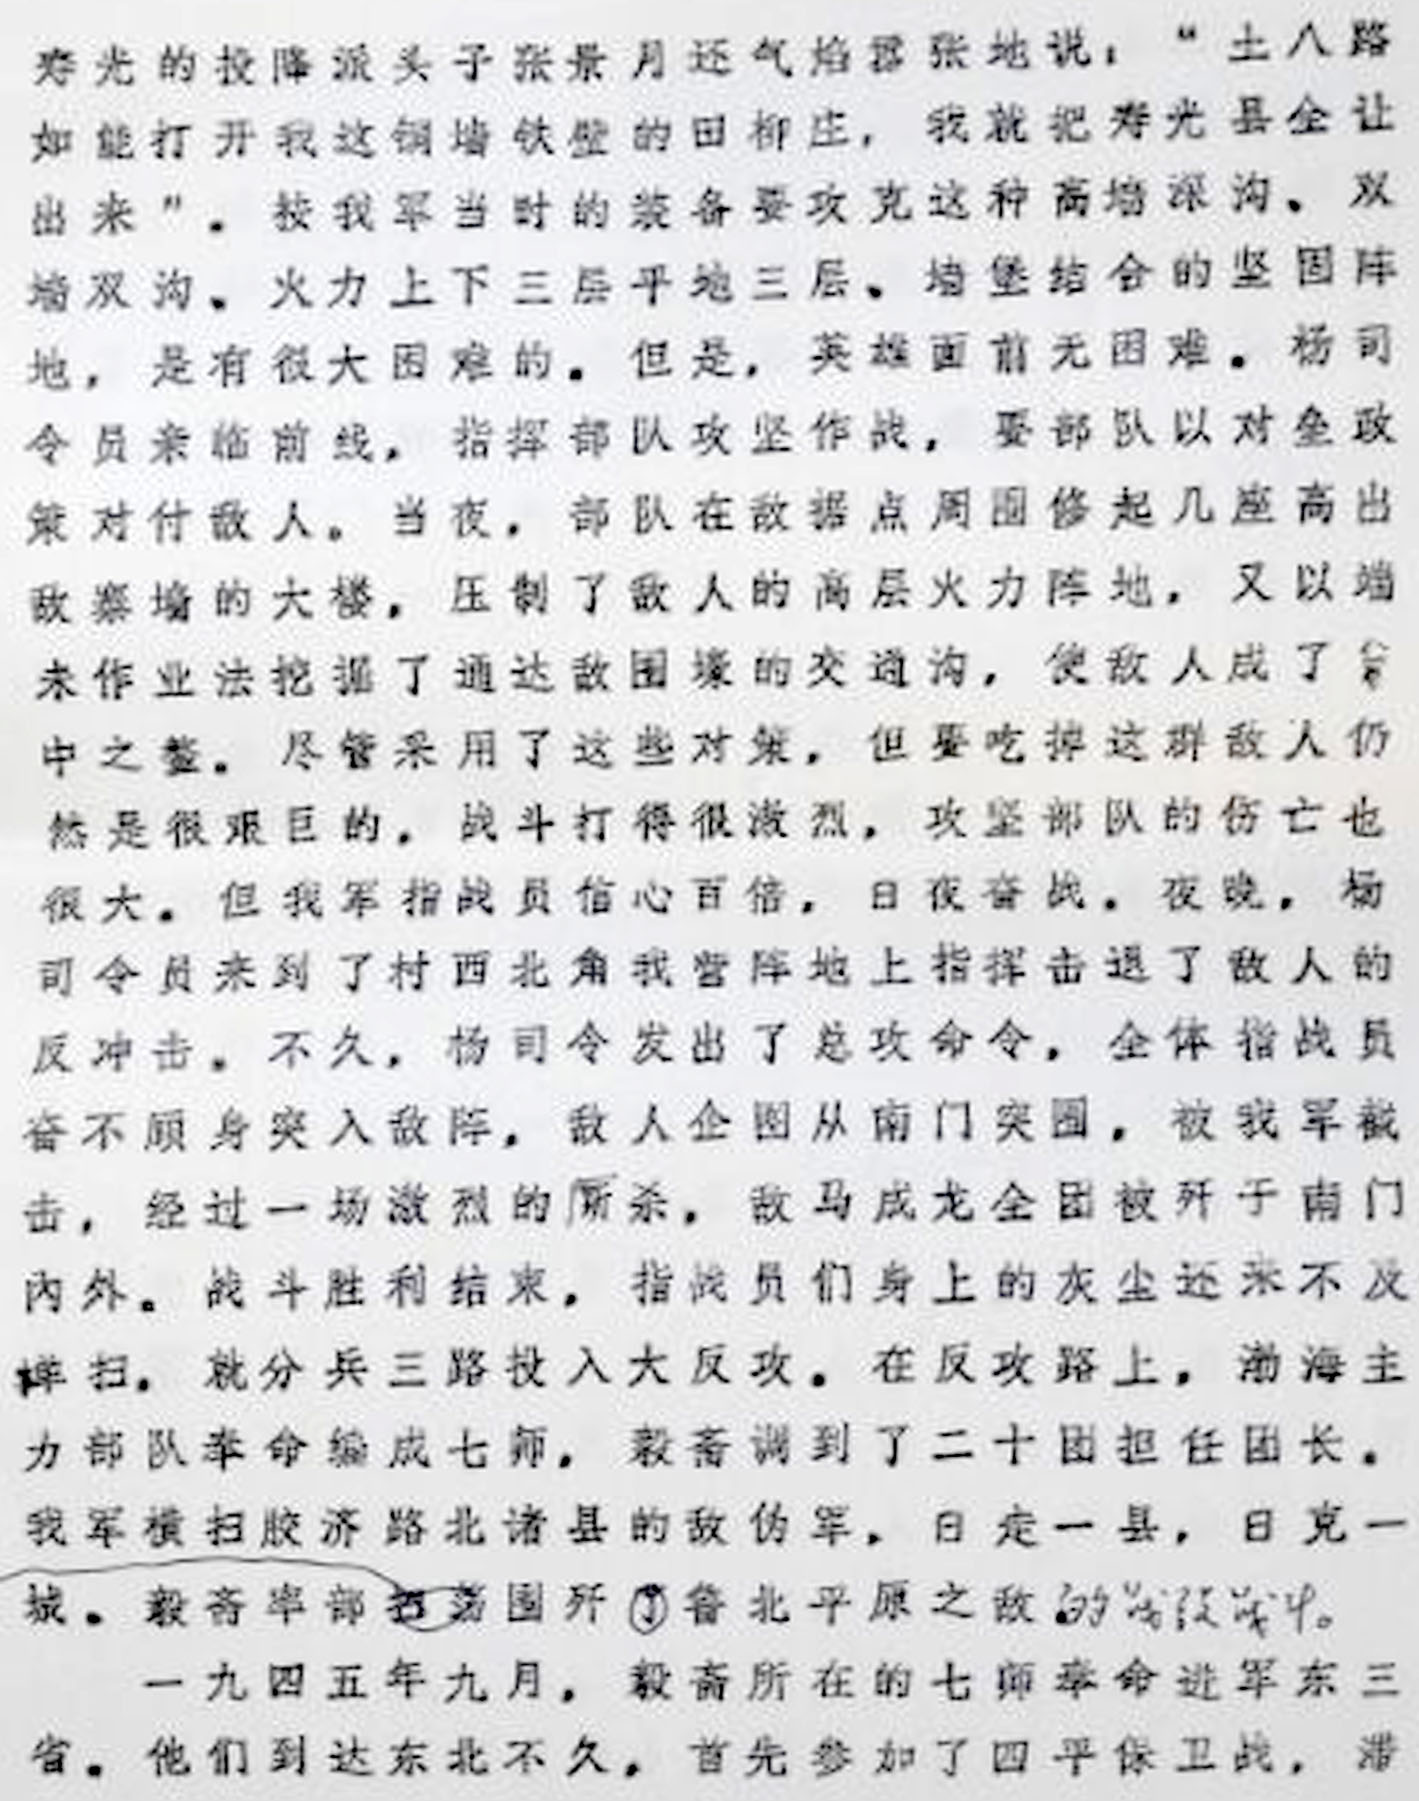 寿光的投降派头子张景月还气焰嚣张地说：“土八路
如能打开我这铜墙铁壁的田柳庄，我就把寿光县全让
出来”。按我军当时的装备要攻克这种高墙深沟、双
墙双沟、火力上下三层平地三层、墙堡结合的坚固阵
地，是有很大困难的。但是，英雄面前无困难。杨司
令员亲临前线，指挥部队攻坚作战，要部队以对垒政
策对付敌人。当夜，部队在敌据点周围修起几座高出
敌寨墙的大楼，压制了敌人的高层火力阵地，又以端
未作业法挖掘了通达敌围壕的交通沟，使敌人成了
中之鳖。尽管采用了这些对策，但要吃掉这群敌人仍
然是很艰巨的，战斗打得很激烈，攻坚部队的伤亡也
很大。但我军指战员信心百倍，日夜奋战。夜晚，杨
司令员来到了村西北角我营阵地上指挥击退了敌人的
反冲击。不久，杨司令发出了总攻命令，全体指战员
奋不顾身突入敌阵，敌人企图从南门突围，被我军截
击，经过一场激烈的厮杀，敌马成龙全团被歼于南门
内外。战斗胜利结束，指战员们身上的灰尘还来不及
掸扫，就分兵三路投入大反攻。在反攻路上，渤海主
力部队奉命编成七师，毅斋调到了二十团担任团长。
我军横扫胶济路北诸县的敌伪军，日走一县，日克一
城。毅斋率部围歼了鲁北平原之敌的战役战斗。
一九四五年九月，毅斋所在的七师奉命进军东三
省。他们到达东北不久，首先参加了四平保卫战，滞